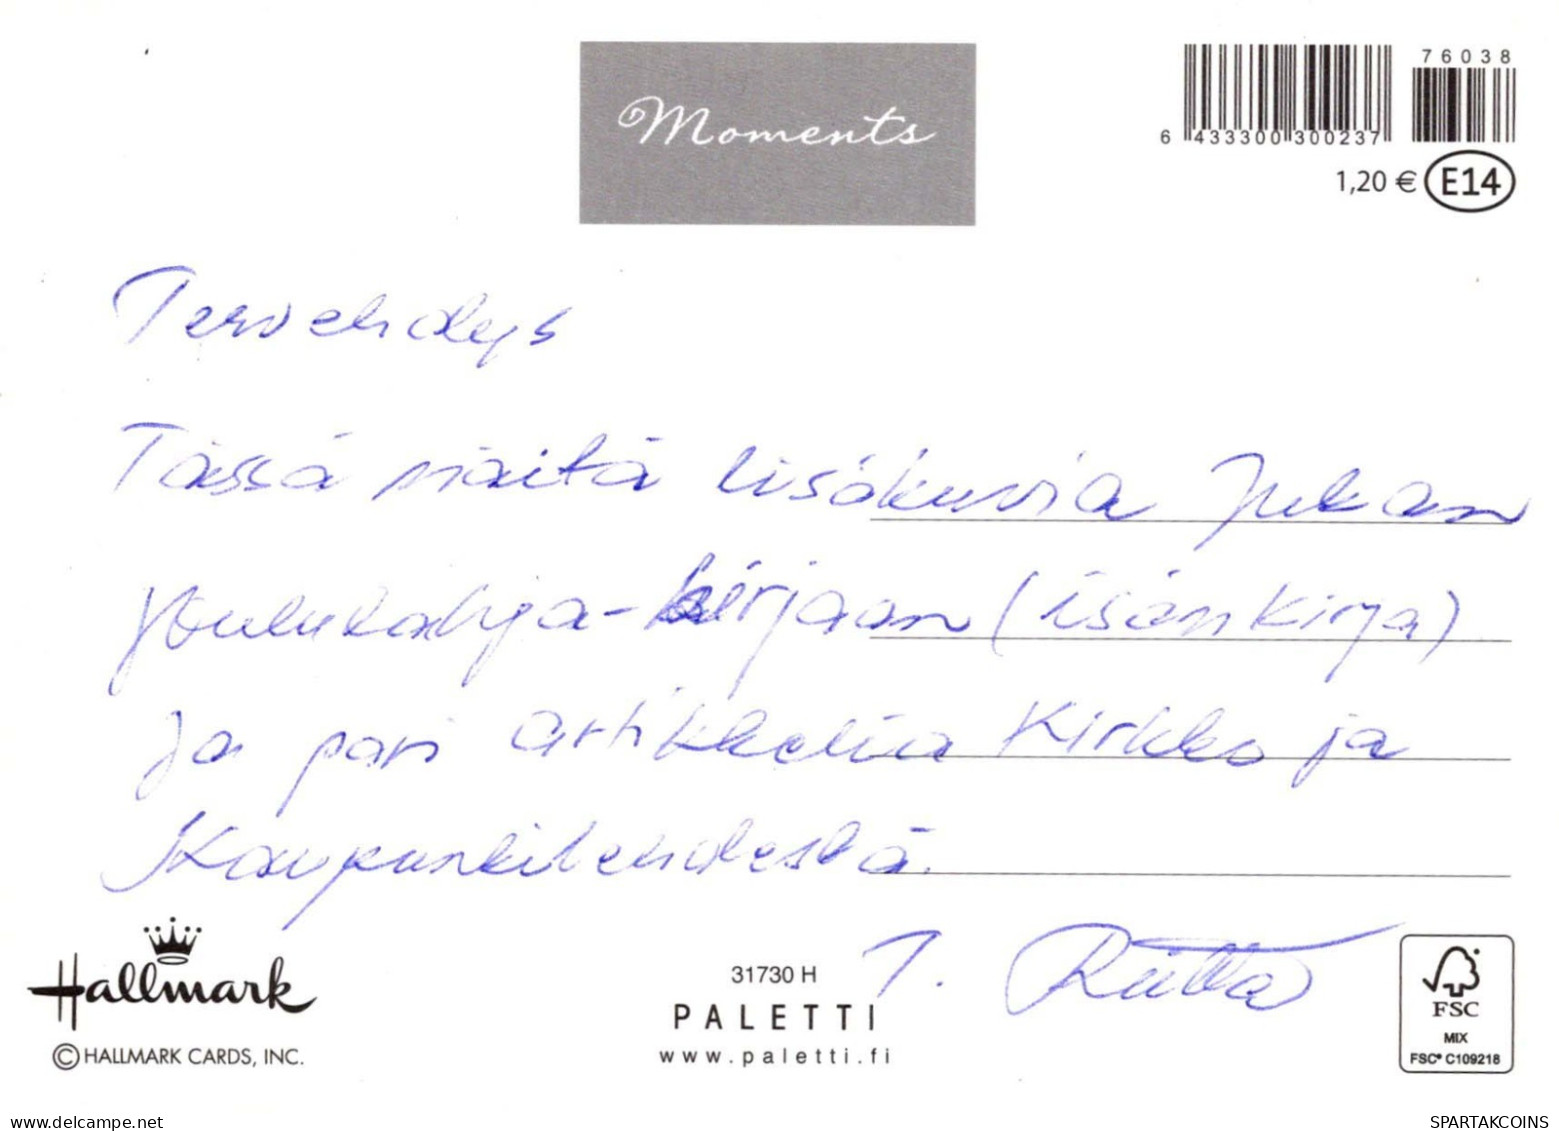 Moments
76038
6 433300 300237
1,20 € E14
Tervehdys
Tässä näitä lisäkuvia Jukan
joululahja-kirjaan (isän kirja)
ja pari artikkelia Kirkko ja
Kaupunkilehdestä.
T. Riitta
Hallmark
© HALLMARK CARDS, INC.
31730 H
PALETTI
www.paletti.fi
FSC
MIX
FSC® C109218
delcampe.net
SPARTAKCOINS